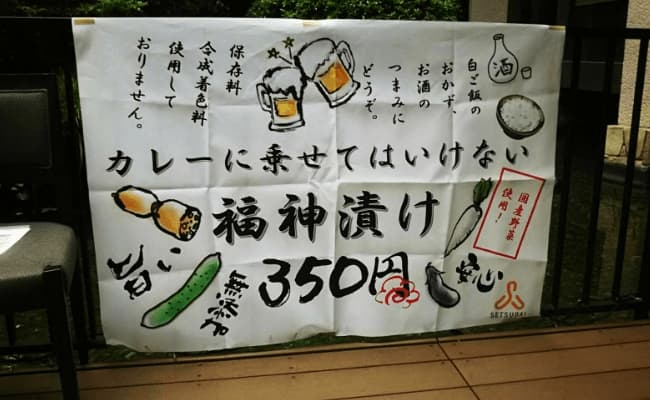 白ご飯の
おかず、
お酒の
つまみに
どうぞ。
保存料
合成着色料
使用して
おりません。
酒
カレーに乗せてはいけない
福神漬け
国産野菜
使用！
旨い
無添加
350円
安心
SETSUBAI